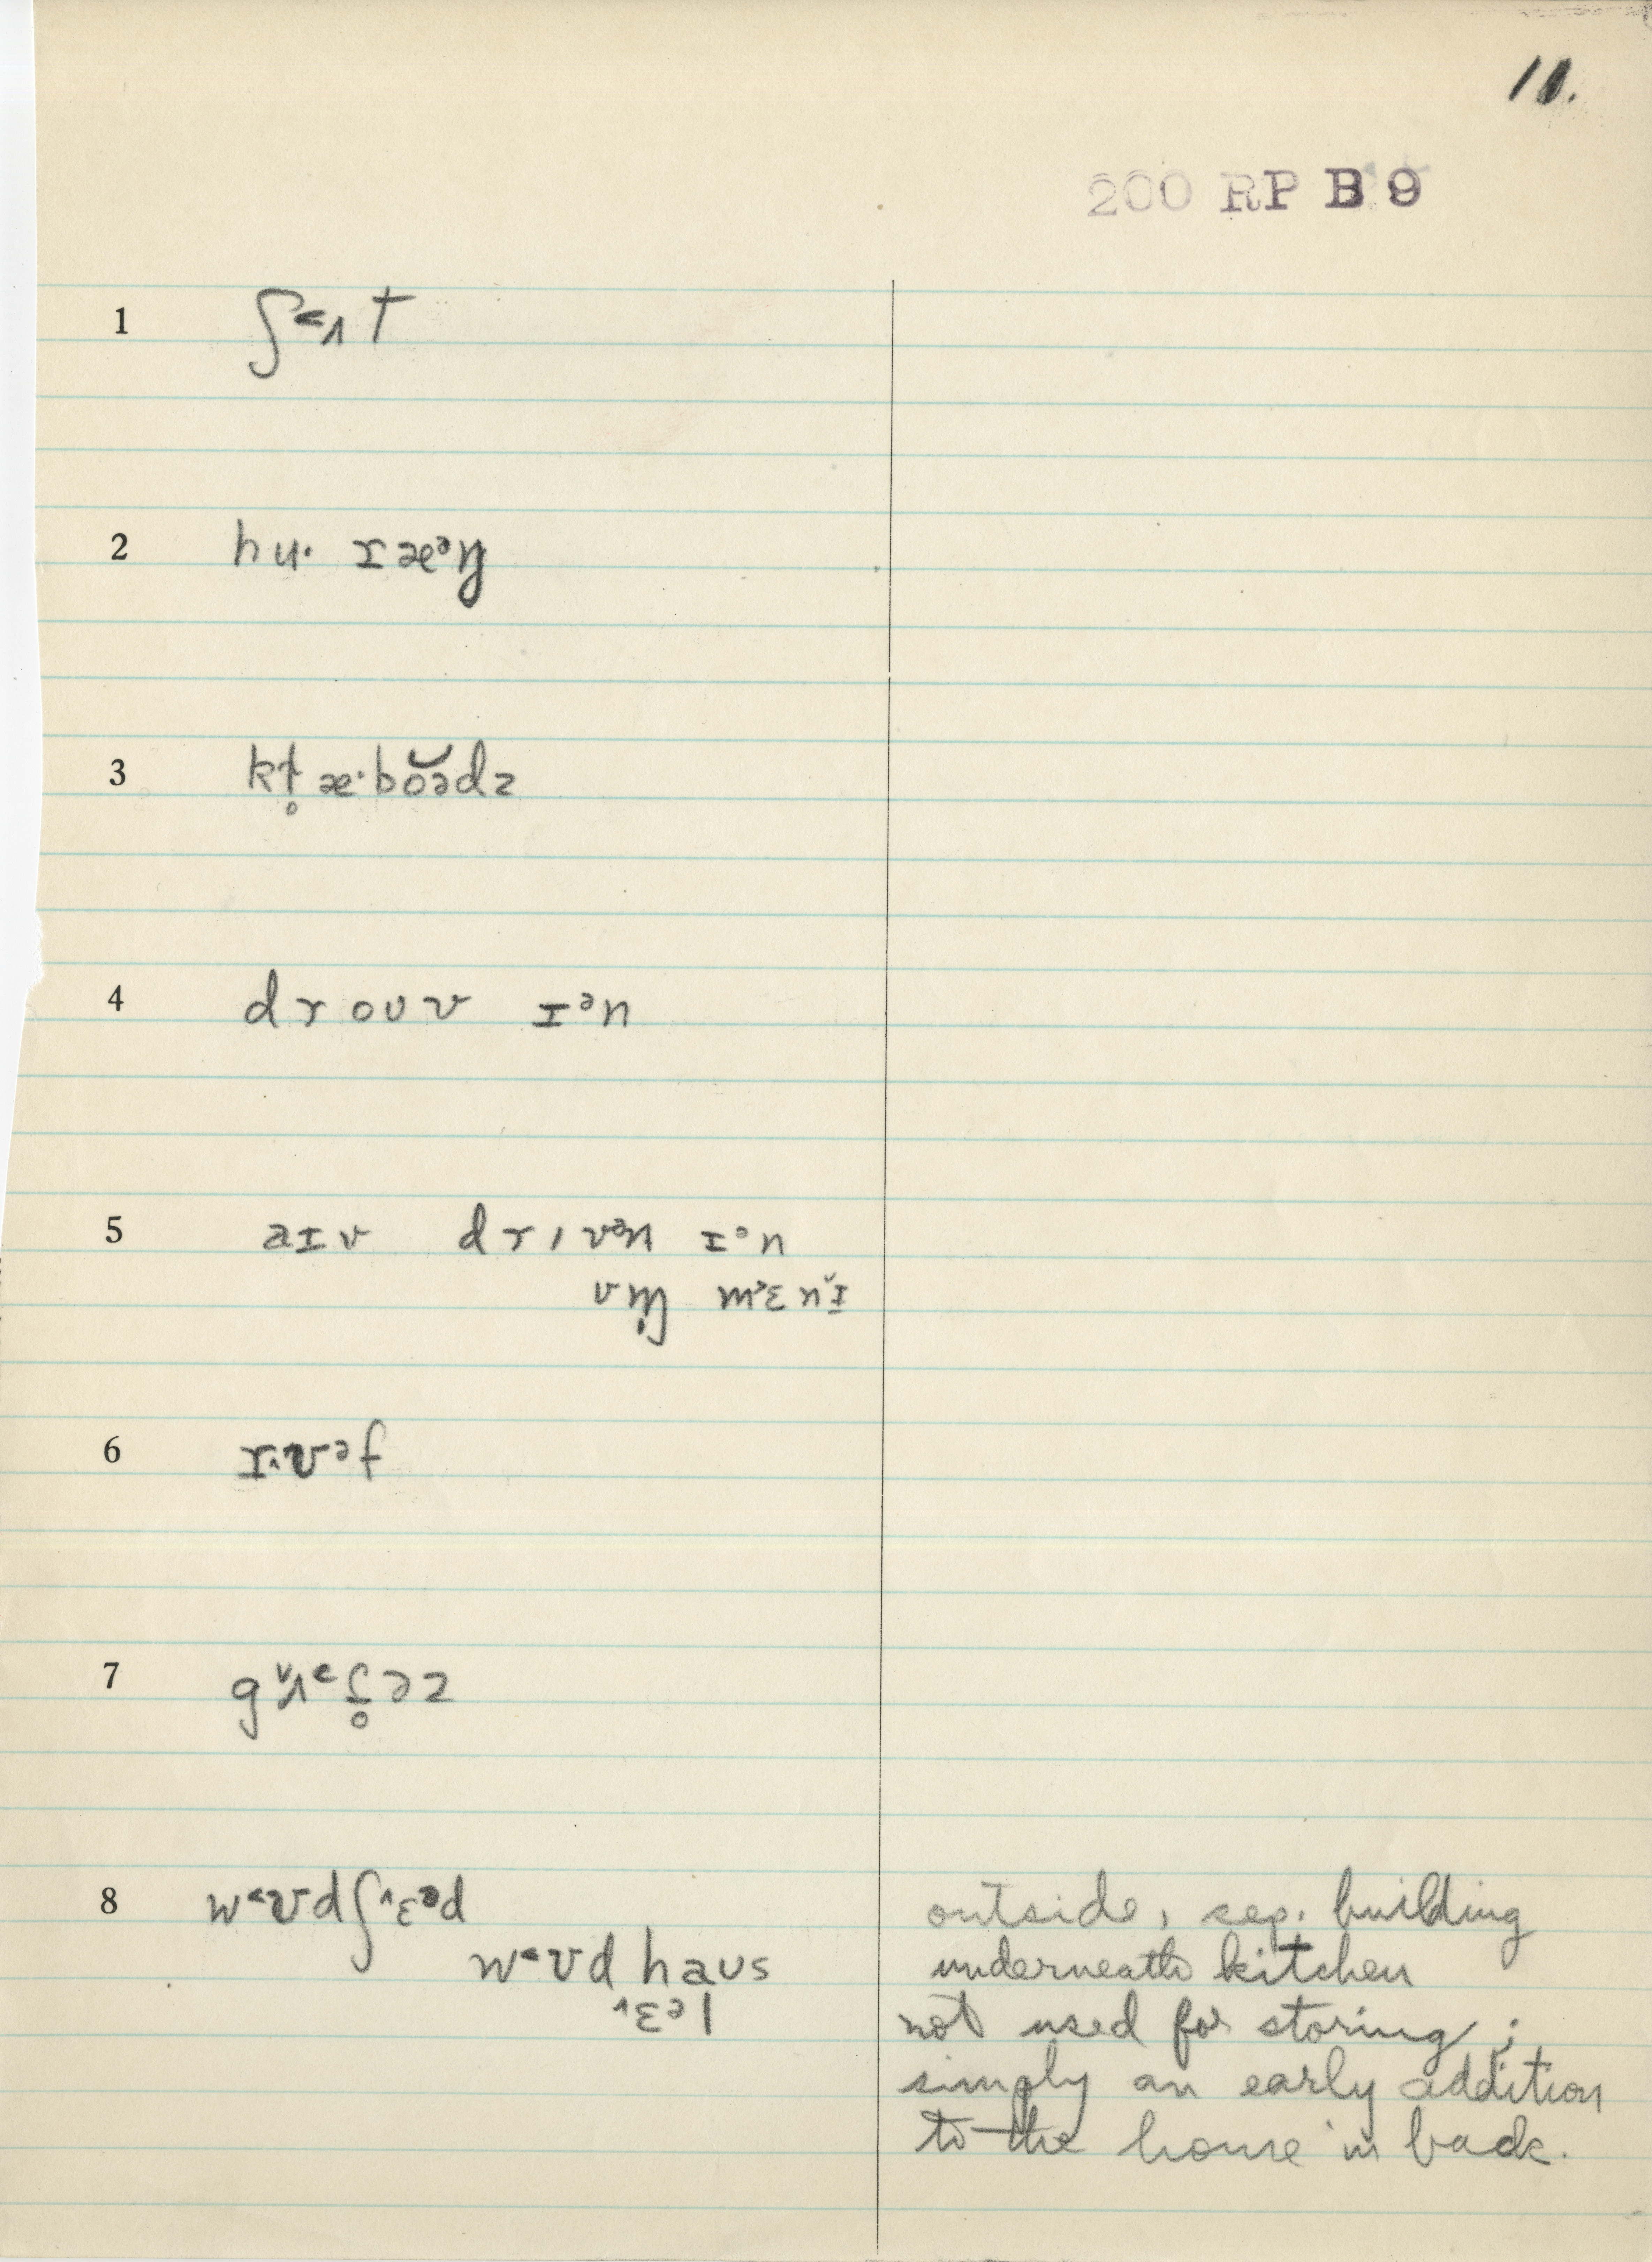 10.
200 RP B 9
1 ʃ˂ʌt
2 hu· ɪæᵊŋ
3 kl̥æ·bŏədz
4 droʊv ɪᵊn
5 aɪv drɪvᵊn ɪᵊn
6 rʊᵊf
7 gʌ˂ʃ̥əz
8 w˂ʊdʃ˄ɛᵊd outside, sep. building
w˂ʊd haʊs underneath kitchen
˄ɛᵊl not used for storing;
simply an early addition
to the house in back.